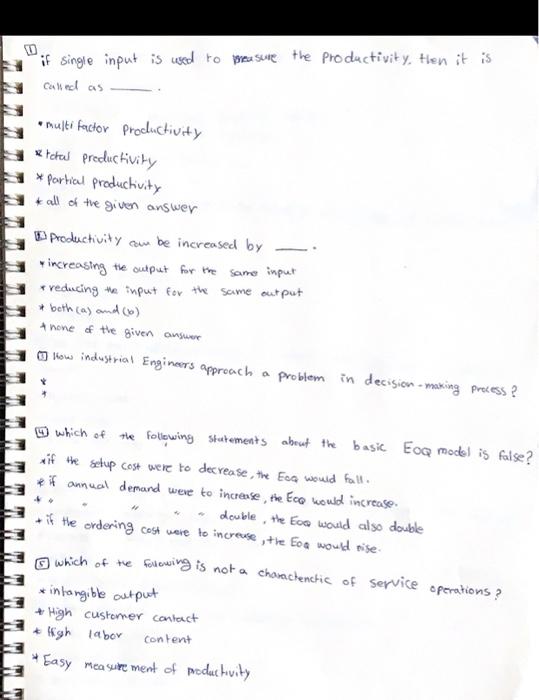 1 if single input is used to measure the productivity. then it is
called as ____.
* multi factor productivity
* total preductivity
* partial productivity
* all of the given answer
2 Productivity can be increased by ____.
* increasing the output for the same input
* reducing the input for the same output
* both (a) and (b)
* none of the given answer
How industrial Engineers approach a problem in decision-making process?
*
*
4 which of the following statements about the basic EOQ model is false?
* if the setup cost were to decrease, the EOQ would fall.
* if annual demand were to increase, the EOQ would increase.
* " " " " double, the EOQ would also double
* if the ordering cost were to increase, the EOQ would rise.
5 which of the following is not a charactenctic of service operations?
* intangible output
* High customer contact
* High labor content
* Easy measurement of productivity